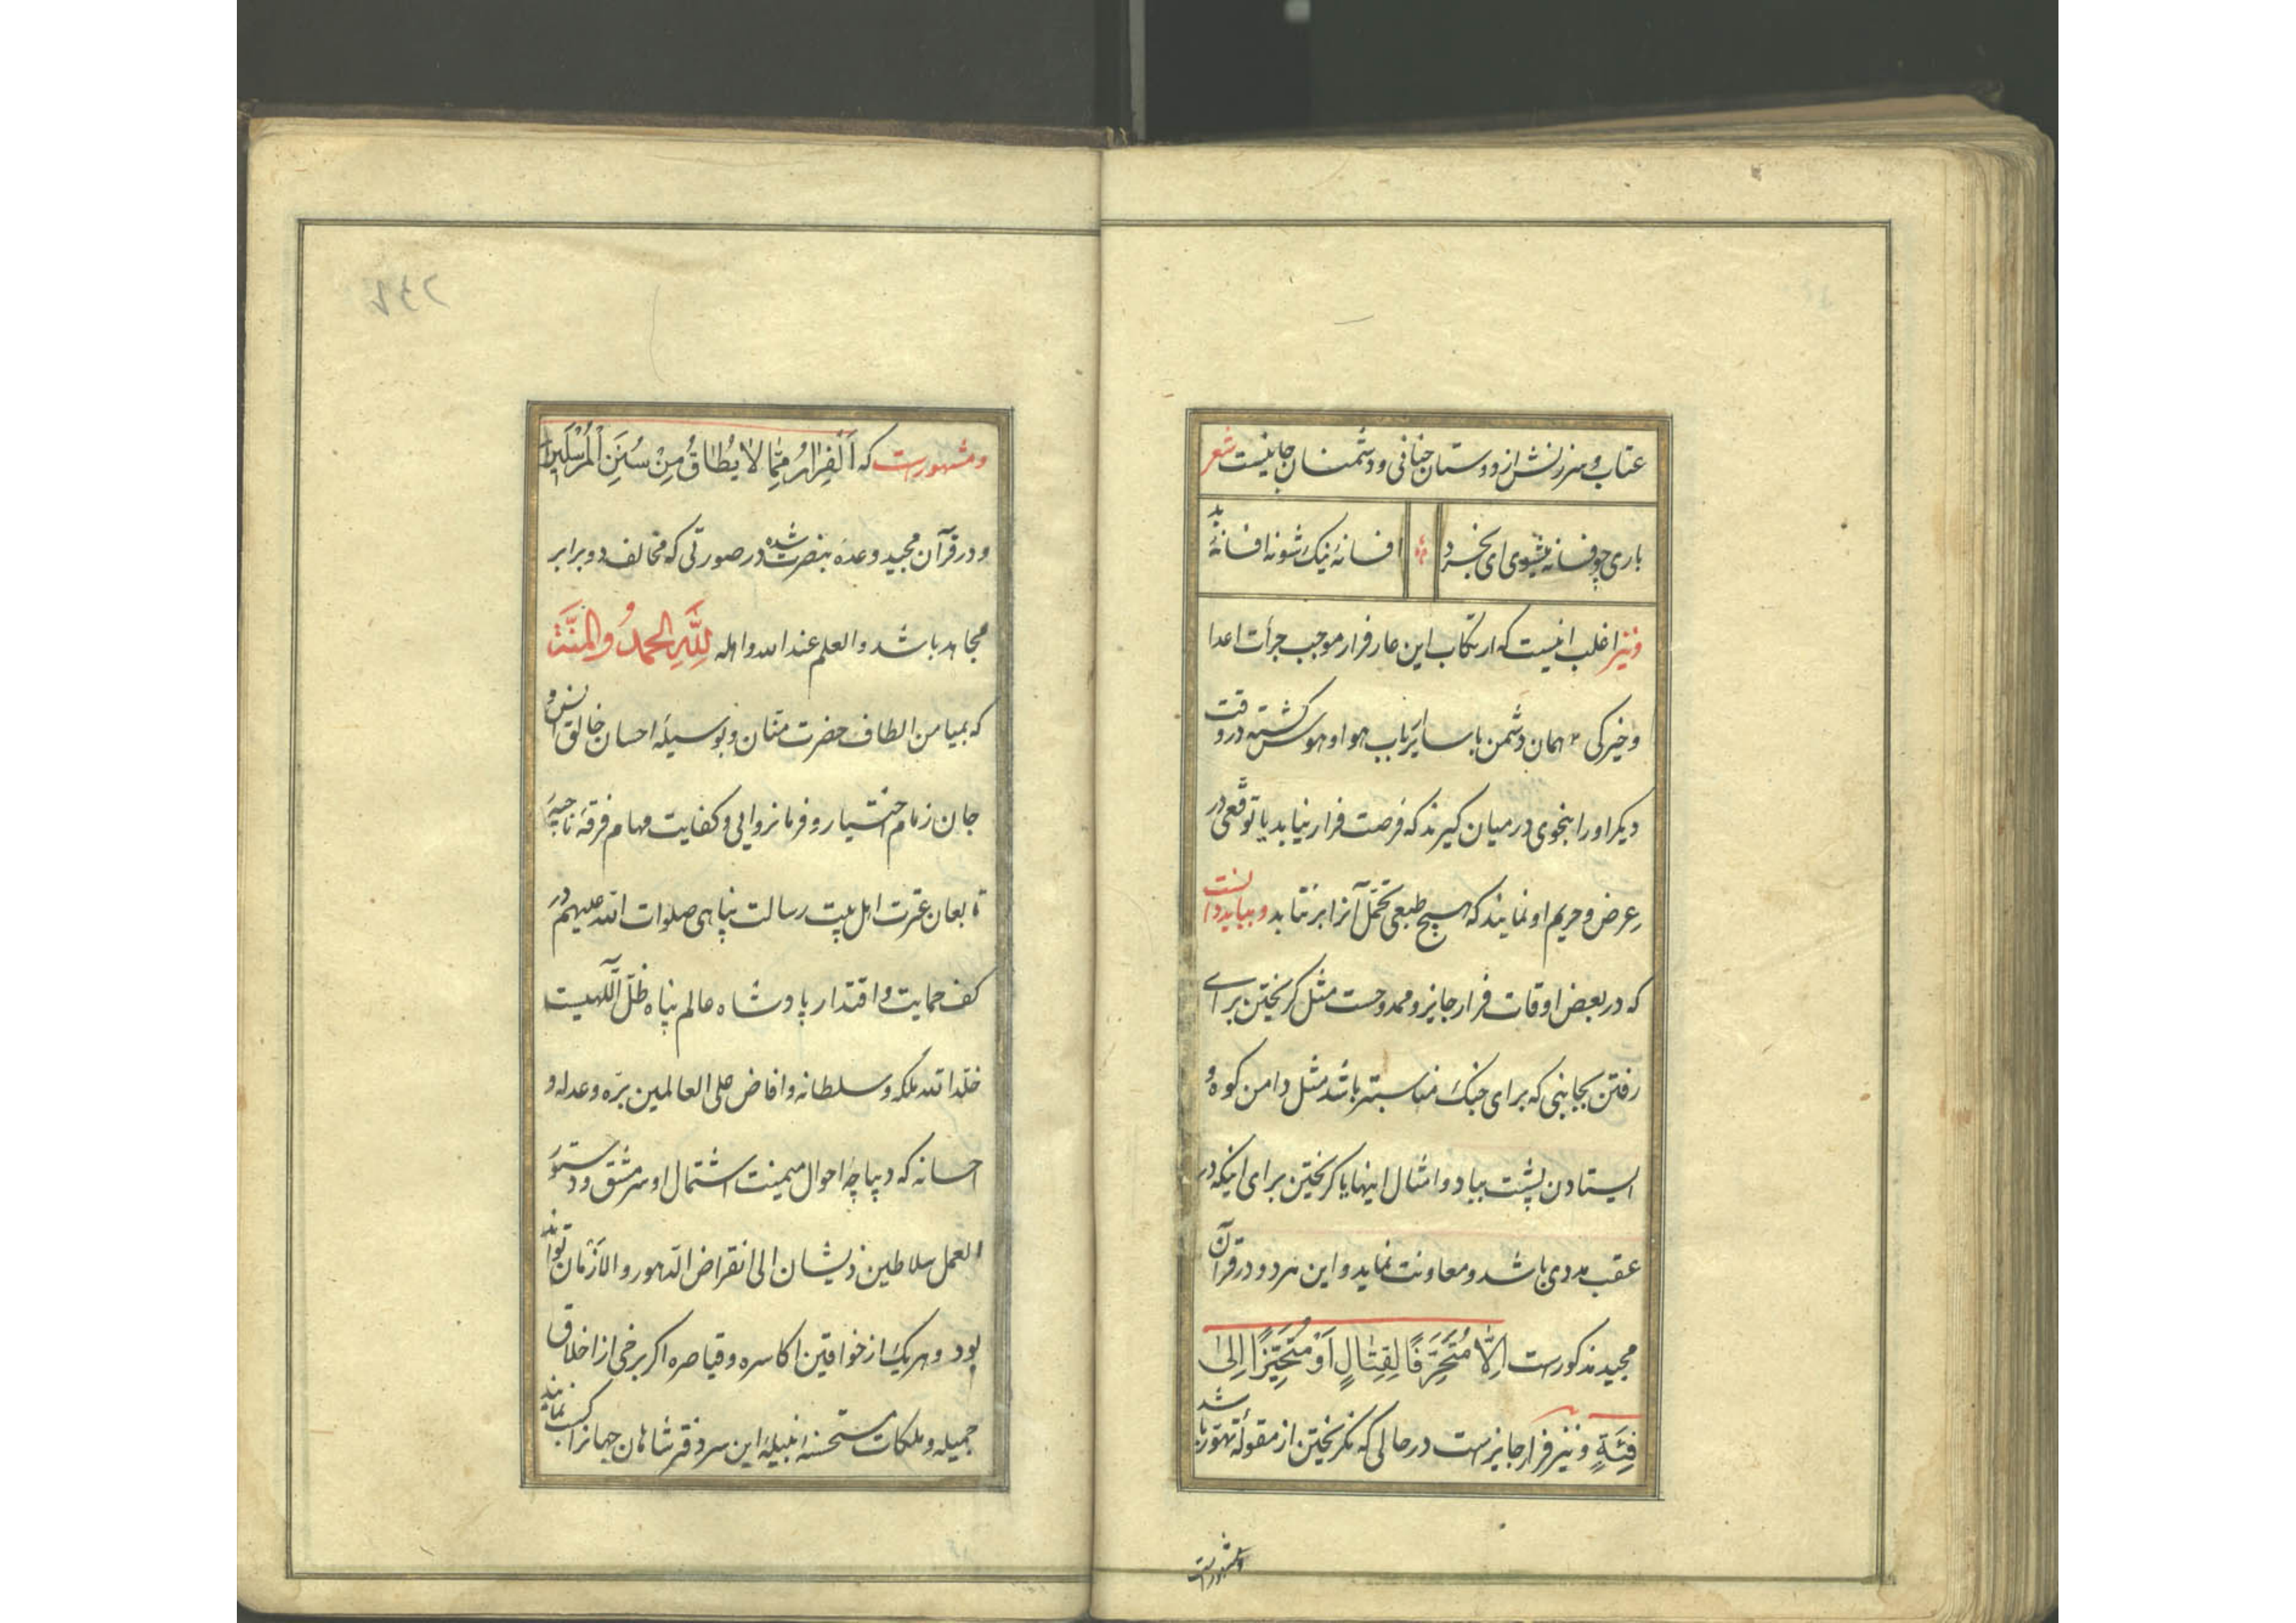 عتاب و سرزنش از دوستان جانی و دشمنان جانیست شعر
باری چو فسانه میشوی ای بخرد افسانهٔ نیک شو نه افسانهٔ بد
و نیز اغلب اینست که ارتکاب این عار فرار موجب جرأت اعدا
و خیرکی همان دشمن با سایر ارباب هوا و هوس کشته در وقت
دیکر او را بنحوی در میان کیرند که فرصت فرار نیابد یا توقعی در
عرض و حریم او نمایند که هیچ طبعی تحمّل آنرا بر نتابد و بباید دانست
که در بعض اوقات فرار جایز و ممدوحست مثل کریختن برای
رفتن بجانبی که برای جنک مناسبتر باشد مثل دامن کوه و
ایستادن پشت بباد و امثال اینها یا کریختن برای اینکه در
عقب مددی باشد و معاونت نماید و این هر دو در قرآن
مجید مذکورست اِلَّا مُتَحَرِّفًا لِقِتٰالٍ اَوْ مُتَحَیِّزًا اِلیٰ
فِئَةٍ و نیز فرار جایزست در حالی که نکریختن از مقولهٔ تهوّر باشد
و مشهورست
و مشهورست که اَلْفِرٰارُ مِمّٰا لٰا یُطٰاقُ مِنْ سُنَنِ الْمُرْسَلین
و در قرآن مجید وعدهٔ بنصرت شده در صورتی که مخالف دو برابر
مجاهد باشد و العلم عند الله و اهله لِلّٰهِ الحمدُ و المنَّة
که بمیامن الطاف حضرت منّان و بوسیلهٔ احسان خالق انس و
جان زمام اختیار و فرمانروایی و کفایت مهام فرقهٔ ناجیهٔ
تابعان عترت اهل بیت رسالت پناهی صلوات الله علیهم در
کف حمایت و اقتدار پادشاه عالم پناه ظلّ آللهیست
خلّد الله ملکه و سلطانه و افاض علی العالمین برّه و عدله و
احسانه که دیباچهٔ احوال میمنت اشتمال او سرمشق و دستور
العمل سلاطین ذیشان الی انقراض الدّهور و الازمان تواند
بود و هر یک از خواقین اکاسره و قیاصره اکر برخی از اخلاق
جمیله و ملکات مستحسنه نبیلهٔ این سر دفتر شاهان جهانرا کسب نمایند